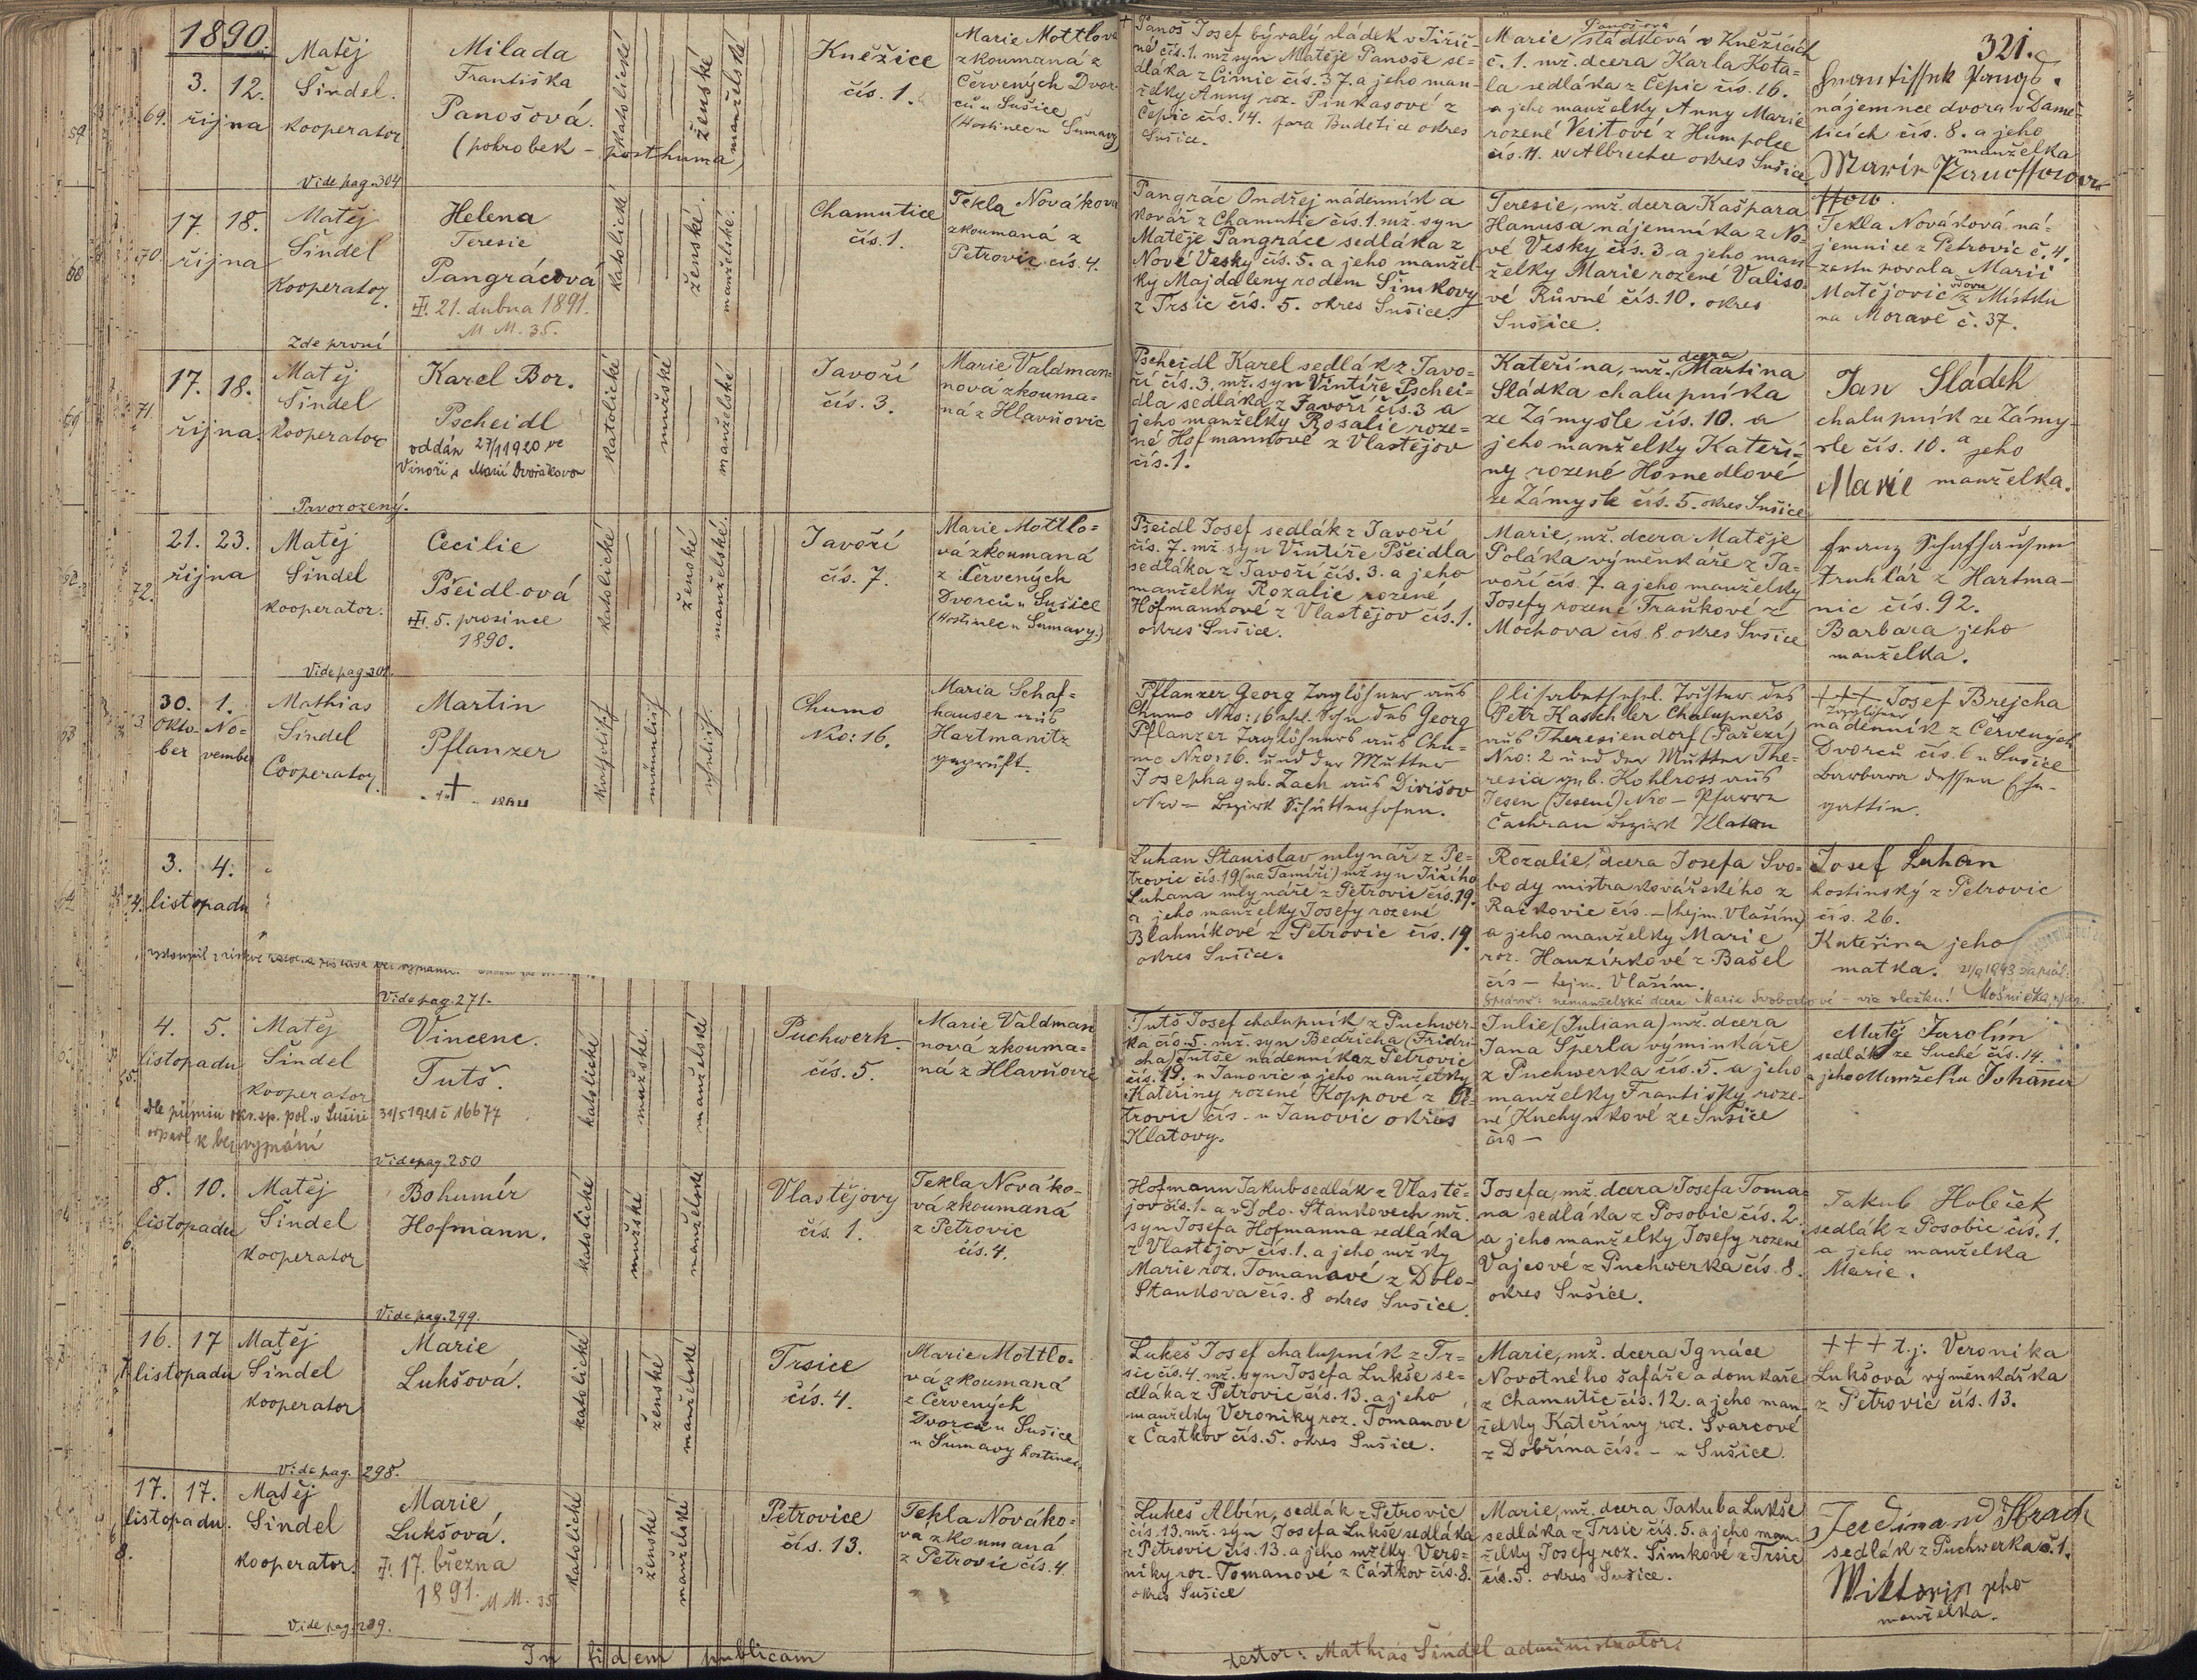 1890.
321.
3. 12.
října
69.
Matěj
Šindel.
kooperator
Milada
Františka
Panošová.
(pohrobek - posthuma)
Vide pag. 304
katolické
ženské
manželské
Kněžice
čís. 1.
Marie Mottlova
zkoumaná z
Červených Dvor-
ců u Sušice
(Hostinec u Šumavy)
Panoš Josef bývalý sládek v Jiřič-
né čís. 1. mž syn Matěje Panoše se-
dláka z Čimic čís. 37. a jeho man-
želky Anny roz. Pinkasové z
Čepic čís. 14. fara Budětice okres
Sušice.
Panošova
Marie sládková v Kněžicích
č. 1. mž. dcera Karla Kota-
la sedláka z Čepic čís. 16.
a jeho manželky Anny Marie
rozené Veitové z Humpolce
čís. 11. u Albrechce okres Sušice
nájemnce dvora v Damě-
ticích čís. 8. a jeho
manželka
17. 18.
října
70.
Matěj
Šindel
Kooperator.
Helena
Teresie
Pangrácová
21. dubna 1891.
M M. 35.
Zde první
katolické
ženské.
manželské.
Chamutice
čís. 1.
Tekla Novákova
zkoumaná z
Petrovic čís. 4.
Pangrác Ondřej nádenník a
kovář z Chamutic čís. 1. mž. syn
Matěje Pangráce sedláka z
Nové Vesky čís. 5. a jeho manžel-
ky Majdaleny rodem Šimkovy
z Trsic čís. 5. okres Sušice.
Teresie, mž. dcera Kašpara
Hanusa nájemníka z No-
vé Vesky čís. 3. a jeho man-
želky Marie rozené Valiso-
vé Růvné čís. 10. okres
Sušice.
Tekla Nováková, ná-
jemnice z Petrovic č. 4.
zastupovala Marii
Matějovic vdovu z Místku
na Moravě č. 37.
17. 18.
října.
71.
Matěj
Šindel
Kooperator
Karel Bor.
Pscheidl
oddán 27/1 1920 ve
Vinoři s Marií Dvořákovou
Prvorozený.
katolické
mužské
manželské
Javoří
čís. 3.
Marie Valdman-
nová zkouma-
ná z Hlavňovic
Pscheidl Karel sedlák z Javo-
ří čís. 3. mž. syn Vintíře Pschei-
dla sedláka z Javoří čís. 3 a
jeho manželky Rosalie roze-
né Hofmannové z Vlastějov
čís. 1.
Kateřina, mž. dcera Martina
Sládka chalupníka
ze Zámyšle čís. 10. a
jeho manželky Kateři-
ny rozené Hosnedlové
ze Zámyšle čís. 5. okres Sušice
Jan Sládek
chalupník ze Zámy-
šle čís. 10. a jeho
Marie manželka.
21. 23.
října
72.
Matěj
Šindel
kooperator.
Cecilie
Pšeidlová
5. prosince
1890.
Vide pag. 301.
katolické
ženské
manželské.
Javoří
čís. 7.
Marie Mottlo-
vá zkoumaná
z Červených
Dvorců u Sušice
(Hostinec u Šumavy.)
Pšeidl Josef sedlák z Javoří
čís. 7. mž syn Vintíře Pšeidla
sedláka z Javoří čís. 3. a jeho
manželky Rozalie rozené
Hofmannové z Vlastějov čís. 1.
okres Sušice.
Marie, mž. dcera Matěje
Poláka výměnkáře z Ja-
voří čís. 7. a jeho manželky
Josefy rozené Traňkové z
Mochova čís. 8. okres Sušice
Franz Schafhausen
truhlář z Hartma-
nic čís. 92.
Barbara jeho
manželka.
30. 1.
Okto- No-
ber vember
Mathias
Šindel
Cooperator.
Martin
Pflanzer
†
katholisch
männlich
ehelich.
Chumo
Nro: 16.
Maria Schaf-
hauser aus
Hartmanitz
geprüft.
Pflanzer Georg Taglöhner aus
Chumo Nro: 16 ehel. Sohn des Georg
Pflanzer Taglöhners aus Chu-
mo Nro: 16. und der Mutter
Josepha geb. Zach aus Divišov
Nro - Bezirk Schüttenhofen.
Elisabeth ehel. Tochter des
Petr Kaschler Chalupners
aus Theresiendorf (Pařezí)
Nro: 2 und der Mutter The-
resia geb. Kohlross aus
Jesen (Jesení) Nro - Pfarre
Čachrau Bezirk Klatau
+++ Josef Brejcha
Taglöhner
nádenník z Červených
Dvorců čís. 6 u Sušice
Barbara dessen Ehe-
gattin.
3. 4.
74. listopadu
Luhan Stanislav mlynář z Pe-
trovic čís. 19 (na Tamíři) mž syn Jiřího
Luhana mlynáře z Petrovic čís. 19.
a jeho manželky Josefy rozené
Blahníkové z Petrovic čís. 19.
okres Sušice.
Rozalie, dcera Josefa Svo-
body mistra kovářského z
Račkovic čís. - (hejm. Vlaším)
a jeho manželky Marie
roz. Hauzírkové z Bašel
čís - hejm. Vlaším.
Správně: nemanželská dcera Marie Svobodové - viz vložku!
Josef Luhan
hostinský z Petrovic
čís. 26.
Kateřina jeho
matka.
Vide pag. 271.
4. 5.
listopadu
Matěj
Šindel
kooperator
Vincenc.
Tutš.
31/5 1921 č 16677
Vide pag. 250
katolické
mužské.
manželské
Puchwerk.
čís. 5.
Marie Valdman
nová zkouma-
ná z Hlavňovic
Tutš Josef chalupník z Puchwer-
ka čís. 5. mž. syn Bedřicha (Fridri-
cha) Tutše nádenníka z Petrovic
čís. 19. u Janovic a jeho manželky
Kateřiny rozené Koppové z Pe-
trovic čís. - u Janovic okres
Klatovy.
Julie (Juliana) mž. dcera
Jana Šperla výminkáře
z Puchwerka čís. 5. a jeho
manželky Františky roze-
né Kuchynkové ze Sušice
čís -
Matěj Jarolím
sedlák ze Suché čís. 14.
a jeho Manželka Johanna
8. 10.
listopadu
Matěj
Šindel
kooperator
Bohumír
Hofmann.
Vide pag. 299.
katolické
mužské
manželské
Vlastějovy
čís. 1.
Tekla Nováko-
vá zkoumaná
z Petrovic
čís. 4.
Hofmann Jakub sedlák z Vlastě-
jov čís. 1. a v Dolo-Stankovech mž.
syn Josefa Hofmanna sedláka
z Vlastějov čís. 1. a jeho mžky
Marie roz. Tomanové z Dolo-
Stankova čís. 8 okres Sušice.
Josefa, mž. dcera Josefa Toma-
na sedláka z Posobic čís. 2.
a jeho manželky Josefy rozené
Vajcové z Puchwerka čís. 8.
okres Sušice.
Jakub Holeček
sedlák z Posobic čís. 1.
a jeho manželka
Marie.
16. 17
listopadu
Matěj
Šindel
kooperator
Marie
Lukšová.
Vide pag. 298.
katolické
ženské
manželské
Trsice
čís. 4.
Marie Mottlo-
vá zkoumaná
z Červených
Dvorců u Sušice
u Šumavy hostinec
Lukeš Josef chalupník z Tr-
sic čís. 4. mž. syn Josefa Lukše se-
dláka z Petrovic čís. 13. a jeho
manželky Veroniky roz. Tomanové
z Častkov čís. 5. okres Sušice.
Marie, mž. dcera Ignáce
Novotného šafáře a domkáře
z Chamutic čís. 12. a jeho man-
želky Kateřiny roz. Švarcové
z Dobřína čís. - u Sušice.
+++ t.j. Veronika
Lukšova výměnkářka
z Petrovic čís. 13.
17. 17.
listopadu.
8.
Matěj
Šindel
kooperator.
Marie
Lukšová.
17. března
1891. M M. 35
Vide pag. 289.
katolické
ženské
manželské
Petrovice
čís. 13.
Tekla Nováko-
va zkoumaná
z Petrovic čís. 4.
Lukeš Albín, sedlák z Petrovic
čís. 13. mž. syn Josefa Lukše sedláka
z Petrovic čís. 13. a jeho mželky Vero-
niky roz. Tomanové z Častkov čís. 8.
okres Sušice
Marie, mž. dcera Jakuba Lukše
sedláka z Trsic čís. 5. a jeho man-
želky Josefy roz. Šimkové z Trsic
čís. 5. okres Sušice.
Ferdinand Hrach
sedlák z Puchwerka č. 1.
Wiktorin jeho
manželka.
In fidem publicam
testor: Mathias Šindel administrator.